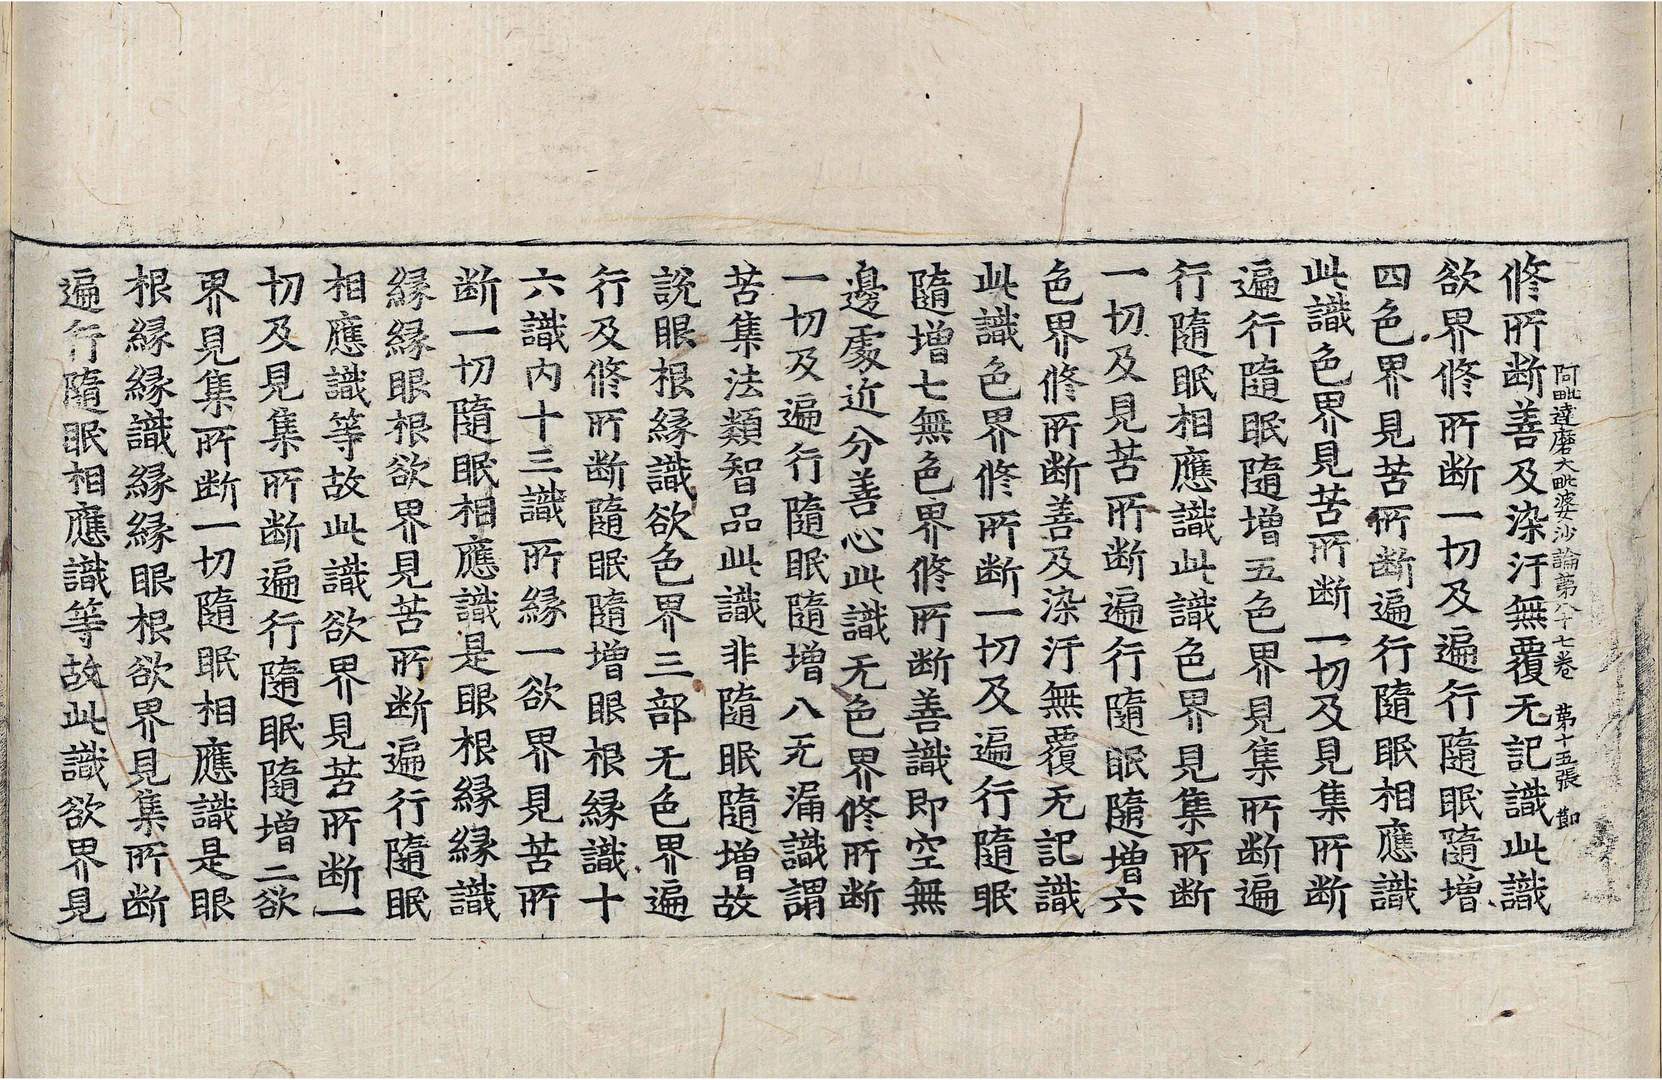 阿毗達磨大毗婆沙論第八十七卷　第十五張　節
修所断善及染汙無覆无記識此識
欲界修所断一切及遍行隨眠隨增
四色界見苦所断遍行隨眠相應識
此識色界見苦所断一切及見集所断
遍行隨眠隨增五色界見集所断遍
行隨眠相應識此識色界見集所断
一切及見苦所断遍行隨眠隨增六
色界修所断善及染汙無覆无記識
此識色界修所断一切及遍行隨眠
隨增七無色界修所断善識即空無
邊處近分善心此識无色界修所断
一切及遍行隨眠隨增八无漏識謂
苦集法類智品此識非隨眠隨增故
說眼根縁識欲色界三部无色界遍
行及修所断隨眠隨增眼根縁識十
六識内十三識所縁一欲界見苦所
断一切隨眠相應識是眼根縁縁識
縁縁眼根欲界見苦所断遍行隨眠
相應識等故此識欲界見苦所断一
切及見集所断遍行隨眠隨增二欲
界見集所断一切隨眠相應識是眼
根縁縁識縁縁眼根欲界見集所断
遍行隨眠相應識等故此識欲界見